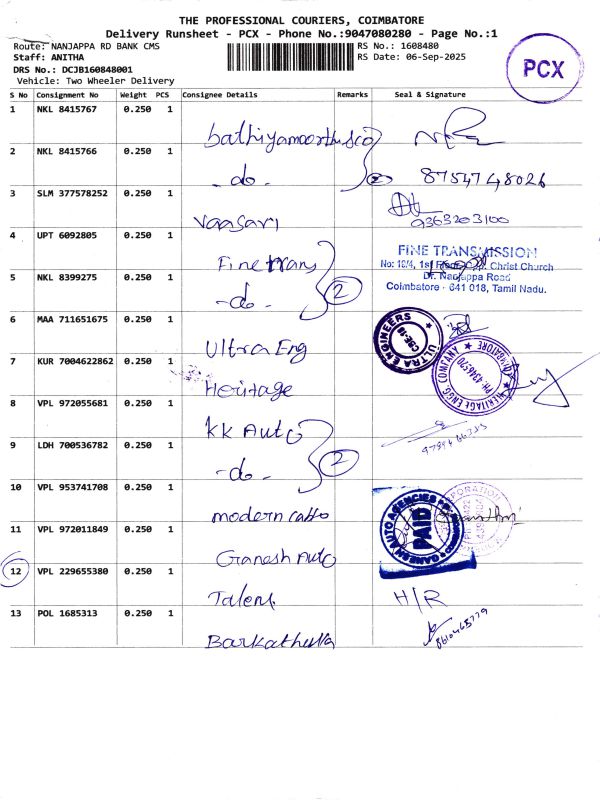 THE PROFESSIONAL COURIERS, COIMBATORE
Delivery Runsheet - PCX - Phone No.:9047080280 - Page No.:1
Route: NANJAPPA RD BANK CMS
RS No.: 1608480
Staff: ANITHA
RS Date: 06-Sep-2025
DRS No.: DCJB160848001
Vehicle: Two Wheeler Delivery
PCX
S No Consignment No Weight PCS Consignee Details Remarks Seal & Signature
1 NKL 8415767 0.250 1
2 NKL 8415766 0.250 1 -do- 2 8754748026
3 SLM 377578252 0.250 1 Vaasavi 9363203100
4 UPT 6092805 0.250 1 Fine trans
FINE TRANSMISSION
No: 16/4, 1st Floor, Opp. Christ Church
Dr. Nanjappa Road
Coimbatore - 641 018, Tamil Nadu.
5 NKL 8399275 0.250 1 -do- 2
6 MAA 711651675 0.250 1 Ultra Eng
ULTRA ENGINEERS
CBE-18
7 KUR 7004622862 0.250 1 Heritage
HERITAGE ENGG. COMPANY
8 VPL 972055681 0.250 1 KK Auto
9 LDH 700536782 0.250 1 -do- 2
10 VPL 953741708 0.250 1 modern
GANESH AUTO AGENCIES
PAID
11 VPL 972011849 0.250 1 Ganesh Auto
12 VPL 229655380 0.250 1 Talent H/R
13 POL 1685313 0.250 1 Barkathulla